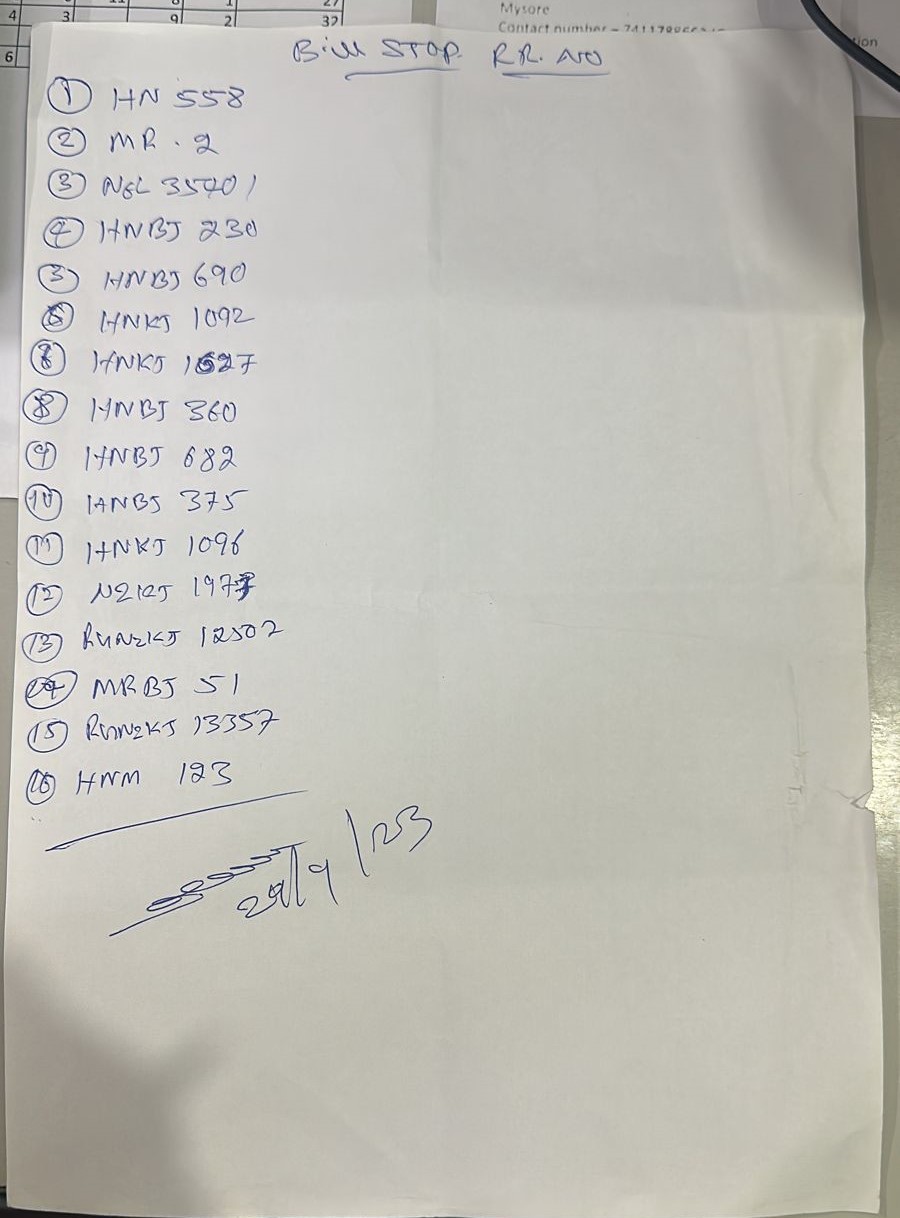 4 3 9 2 32
6
Mysore
Contact number - 
tion
Bill STOP. RR. NO
① HN 558
② MR . 2
③ NGL 35701
④ HNBJ 230
⑤ HNBJ 690
⑥ HNKJ 1092
⑦ HNKJ 1627
⑧ HNBJ 360
⑨ HNBJ 682
⑩ HNBJ 375
⑪ HNKJ 1096
⑫ N2KJ 1977
⑬ RUN2KJ 12502
⑭ MRBJ 51
⑮ RUN2KJ 13357
⑯ HNM 123
29/9/23